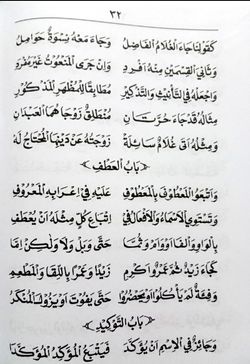 ٣٢
كَقَوْلِنَا جَاءَ الْغُلَامُ الْفَاضِلُ وَجَاءَ مَعْهُ نِسْوَةٌ حَوَامِلُ
وَثَانِيَ الْقِسْمَيْنِ مِنْهُ أَفْرِدِ وَإِنْ جَرَى الْمَنْعُوتُ غَيْرَ مُفْرَدِ
وَاجْعَلْهُ فِي التَّأْنِيثِ وَالتَّذْكِيرِ مُطَابِقًا لِلْمُظْهَرِ الْمَذْكُورِ
مِثَالُهُ قَدْ جَاءَ حُرَّتَانِ مُنْطَلِقٌ زَوْجَاهُمَا الْعَبْدَانِ
وَمِثْلُهُ أَتَى غُلَامٌ سَائِلَةْ زَوْجَتُهُ عَنْ دَيْنِهَا الْمُحْتَاجِ لَهْ
﴿ بَابُ الْعَطْفِ ﴾
وَأَتْبَعُوا الْمَعْطُوفَ بِالْمَعْطُوفِ عَلَيْهِ فِي إِعْرَابِهِ الْمَعْرُوفِ
وَتَسْتَوِي الْأَسْمَاءُ وَالْأَفْعَالُ فِي إِتْبَاعِ كُلٍّ مِثْلَهُ إِنْ يُعْطَفِ
بِالْوَاوِ وَالْفَا أَوْ وَأَمْ وَثُمَّا حَتَّى وَبَلْ وَلَا وَلَكِنْ إِمَّا
كَجَاءَ زَيْدٌ ثُمَّ عَمْرٌو وَأَكْرِمِ زَيْدًا وَعَمْرًا بِاللِّقَا وَالْمَطْعَمِ
وَفِئَةٌ لَمْ يَأْكُلُوا أَوْ يَحْضُرُوا حَتَّى يَفُوتَ أَوْ يَزُولَ الْمُنْكَرُ
﴿ بَابُ التَّوْكِيدِ ﴾
وَجَائِزٌ فِي الْاِسْمِ أَنْ يُؤَكَّدَا فَيَتْبَعُ الْمُؤَكِّدُ الْمُؤَكَّدَا